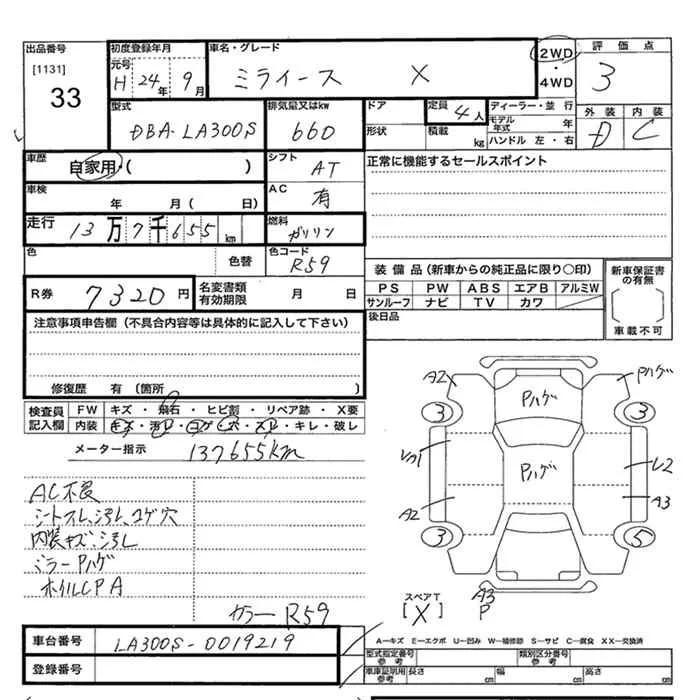 出品番号
[1131]
33
初度登録年月
元号
H 24年 9月
車名・グレード
ミライース X
2WD
・
4WD
評価点
3
型式
DBA-LA300S
排気量又はkw
660
ドア
形状
定員 4人
積載 kg
ディーラー・並 行
モデル年式 年
ハンドル 左・右
外装 内装
D C
車歴
自家用・( )
シフト
AT
正常に機能するセールスポイント
車検
年 月( 日)
AC
有
走行
13万7千655km
燃料
ガソリン
色
色替
色コード
R59
装備品(新車からの純正品に限り○印)
PS PW ABS エアB アルミW
サンルーフ ナビ TV カワ
新車保証書の有無
車載不可
R券 7320円
名変書類有効期限 月 日
後日品
注意事項申告欄(不具合内容等は具体的に記入して下さい)
修復歴 有(箇所 )
検査員記入欄
FW キズ・飛石・ヒビ割・リペア跡・X要
内装 キズ・汚レ・コゲ・穴・スレ・キレ・破レ
メーター指示 137655km
AC不良
シートスレ、汚レ、コゲ穴
内装キズ、汚レ
ミラーPハゲ
ホイルCPA
カラーR59
A2
Pハゲ
Pハゲ
3
3
Pハゲ
A2
A3
3
5
A3
P
スペアT
[X]
A―キズ E―エクボ U―凹み W―補修跡 S―サビ C―腐食 XX―交換済
車台番号 LA300S-0019219
登録番号
型式指定番号
参考
類別区分番号
参考
車庫証明用
参考
長さ cm
幅 cm
高さ cm